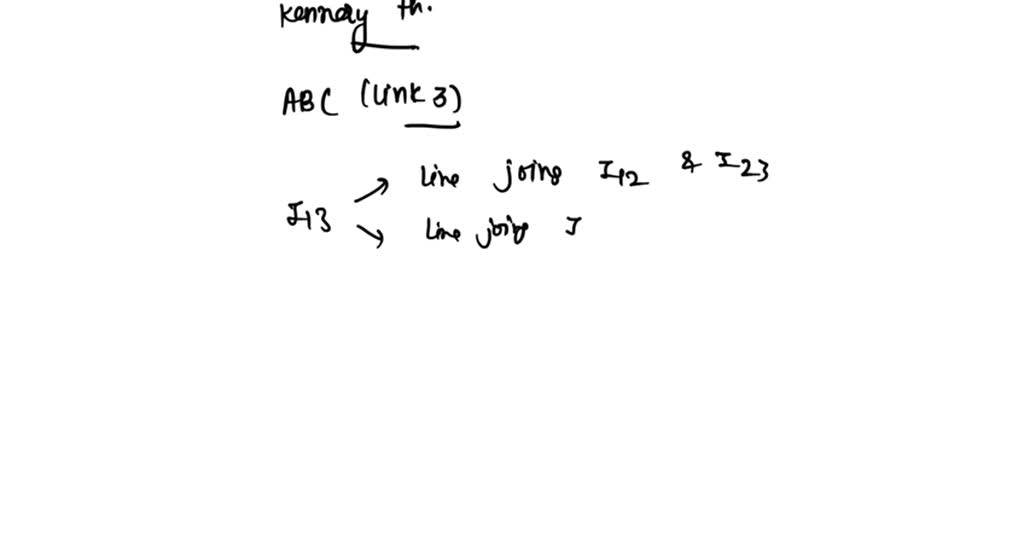 Kennedy th.
ABC (Link 3)
Line joing I12 & I23
I13
Line joing I